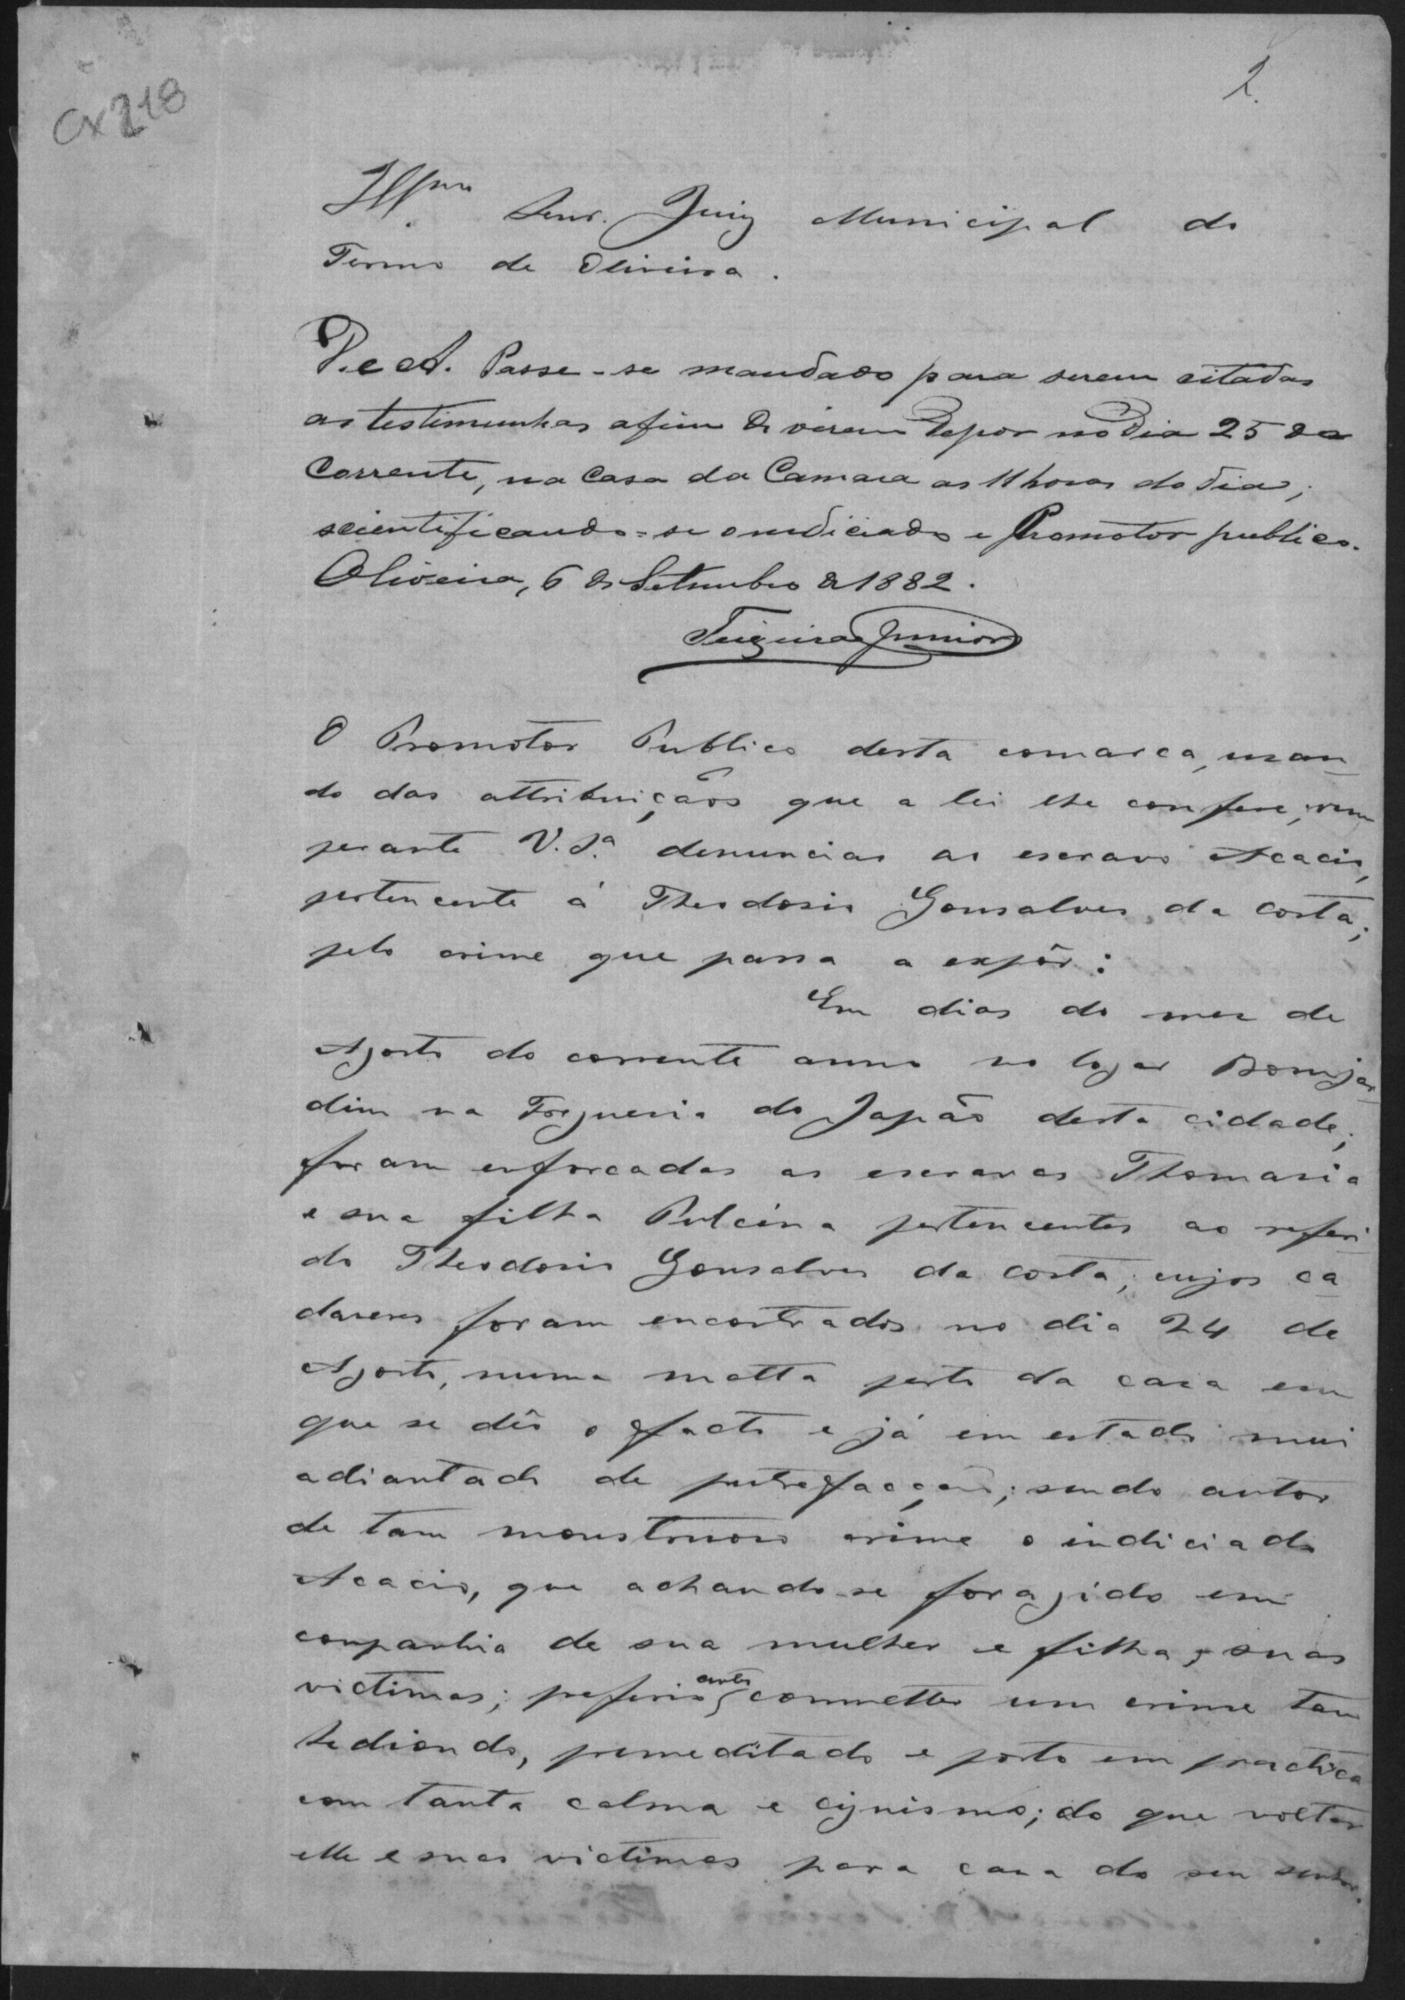 Cx 218
2.
Illmo Senr. Juiz Municipal do
Termo de Oliveira.
D. e A. Passe-se mandado para serem citadas
as testimunhas afim de virem depor no dia 25 do
Corrente, na Casa da Camara as 11 horas do dia;
scientificando-se o indiciado e Promotor publico.
Oliveira, 6 de Setembro de 1882.
Teixeira Junior
O Promotor Publico desta comarca, usan
do das attribuiçãos que a lei lhe confere, vem
perante V. Sª denunciar ao escravo Acacio,
pertencente á Theodosio Gonsalves da Costa;
pelo crime que passa a expôr:
Em dias do mez de
Agosto do corrente anno no logar Bomjar
dim na Fregueria do Japão desta cidade;
foram enforcadas as escravas Thomasia
e sua filha Pulcéna pertencentes ao referi
do Theodosio Gonsalves da Costa; cujos ca
daveres foram encontrados no dia 24 de
Agosto, numa matta perto da casa em
que se dêo o facto e já em estado mui
adiantado de putrefacção; sendo autor
de tam monstruoso crime o indiciado
Acacio, que achando-se foragido em
companhia de sua mulher e filha, suas
victimas; preferio antes commetter um crime tam
hediondo, premeditado e posto em practica
com tanta calma e cynismo; do que voltar
elle e suas victimas para casa do seu senhor.